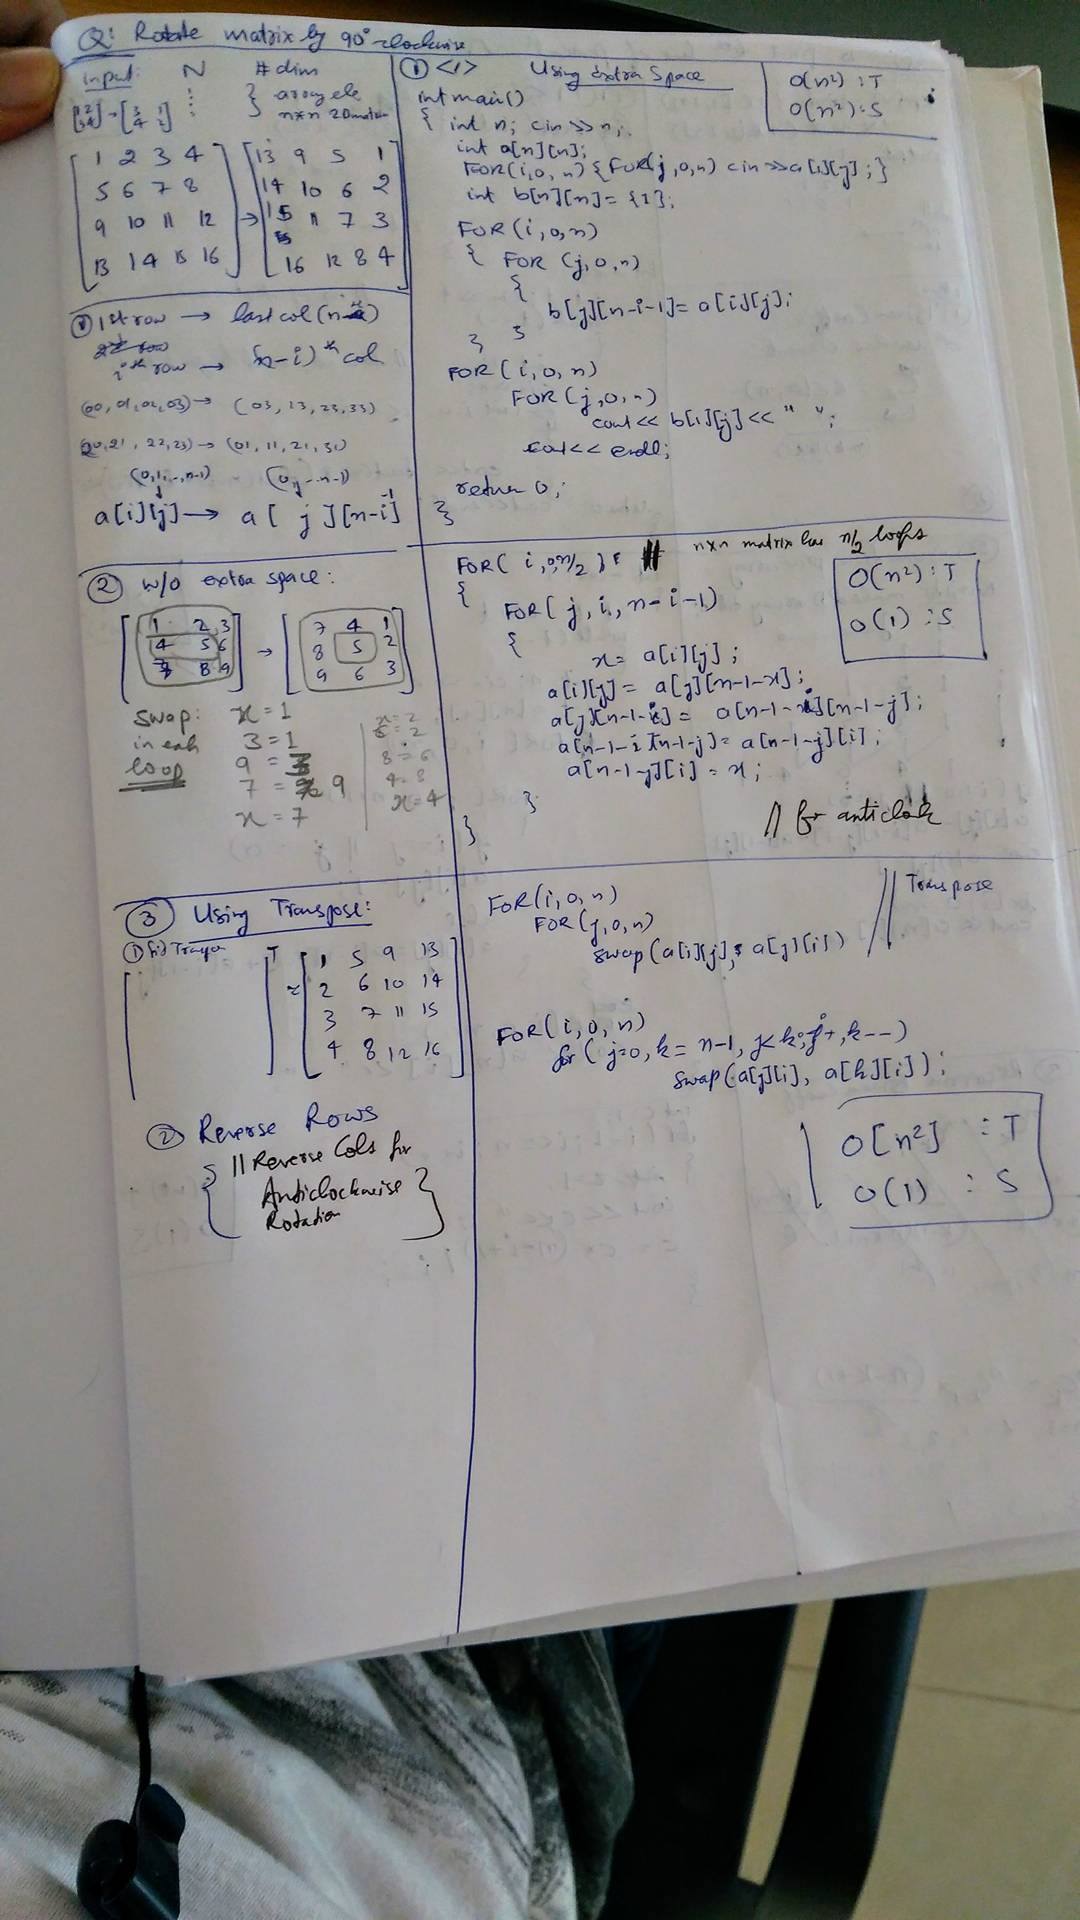 Q: Rotate matrix by 90° clockwise
input: N # dim
⋮ } array ele
n*n 2D matrix
[1 2 3 4] → [3 1 4 2]
1 2 3 4
5 6 7 8
9 10 11 12
13 14 15 16
→
13 9 5 1
14 10 6 2
15 11 7 3
16 12 8 4
① 1st row → last col (n
ith row → (n-i)th col
(00, 01, 02, 03) → (03, 13, 23, 33)
(20, 21, 22, 23) → (01, 11, 21, 31)
(0,1,..,n-1) (0,..n-1)
a[i][j] → a[ j ][n-i-1]
① <1> Using extra Space
O(n²) : T
O(n²) : S
int main()
{ int n; cin >> n;
int a[n][n];
FOR(i,0,n) {FOR(j,0,n) cin >> a[i][j]; }
int b[n][n] = {1};
FOR(i,0,n)
{ FOR (j,0,n)
{
b[j][n-i-1] = a[i][j];
} }
FOR(i,0,n)
FOR(j,0,n)
cout << b[i][j] << " ";
cout << endl;
return 0;
}
② w/o extra space:
1 2 3
4 5 6
7 8 9
→
7 4 1
8 5 2
9 6 3
swap: x = 1
in each 3 = 1
loop 9 = 3
7 = 9
x = 7
x = 2
6 = 2
8 = 6
4 = 8
x = 4
FOR( i,0,n/2 ) # n×n matrix has n/2 loops
{
FOR( j, i, n-i-1)
{
x = a[i][j];
a[i][j] = a[j][n-1-x];
a[j][n-1-i] = a[n-1-i][n-1-j];
a[n-1-i][n-1-j] = a[n-1-j][i];
a[n-1-j][i] = x;
}
}
O(n²) : T
O(1) : S
// for anticlock
③ Using Transpose:
① Find
T =
1 5 9 13
2 6 10 14
3 7 11 15
4 8 12 16
② Reverse Rows
{ // Reverse Cols for
Anticlockwise
Rotation }
FOR(i,0,n)
FOR(j,0,n)
swap(a[i][j], a[j][i])
// Transpose
FOR(i,0,n)
for( j=0, k = n-1, j<k; j++, k--)
swap(a[j][i], a[k][i]);
O[n²] : T
O(1) : S